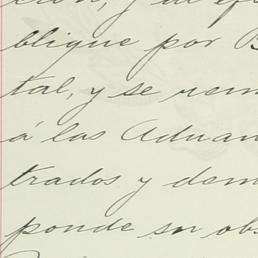 blique por B
tal, y se rem
á las Aduan
trados y dem
ponde su obs